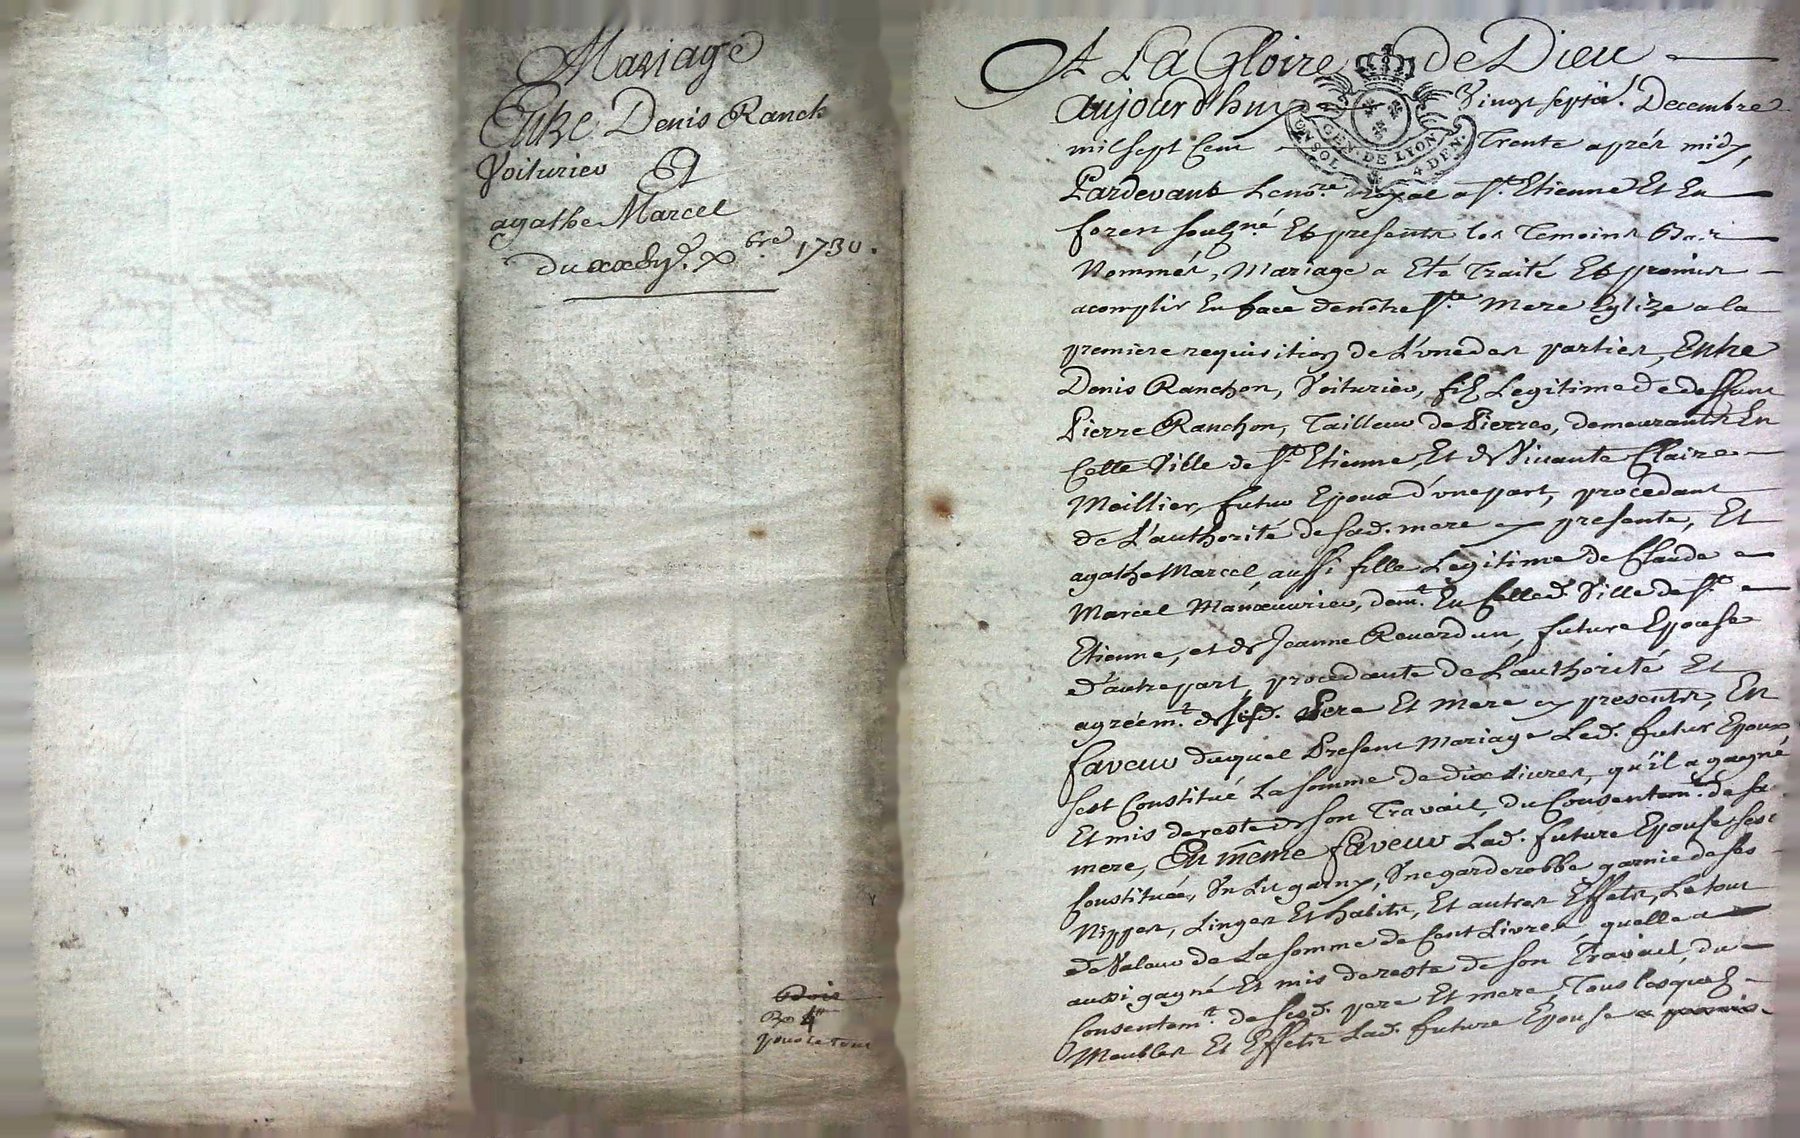 Mariage
Entre Denis Ranch
Voiturier Et
agathe Marcel
du xxvije. xbre 1730.
30 4
pour le tout
A La Gloire de Dieu
aujourd'huy Vingt sept Decembre
mil sept Cent Trente aprés midy,
Pardevant Le nore. royal a St. Etienne Et En
forez soubgné Et presents les Temoins Bas
Nommés, Mariage a Eté Traité Et promis
acomplir En face de nôtre Ste. Mere Eglize a la
premiere requisition de L'une des parties, Entre
Denis Ranchon, Voiturier, filz Legitime de deffunt
Pierre Ranchon, Tailleur de Pierres, demeurants En
Cette Ville de St. Etienne, Et de Vivante Claire
Meillier, futur Epoux d'une part, procédant
de L'authorité de sad. mere presente, Et
agathe Marcel, aussi fille Legitime de Claude
Marcel Manœuvrier, demt. En Cetted. Ville de St.
Etienne, et de Jeanne Reverdun, future Epouse
d'autre part, procédante de L'authorité Et
agréemt. de sesd. Pere Et mere presents, En
faveur duquel Present Mariage Led. futur Epoux
sest Constitué La somme de dix Livres, qu'il a gagné
Et mis de reste de son Travail, du Consentemt. de sa
mere, En même faveur Lad. future Epouse sest
Constituée, Un Lit garny, Une garderobbe garnie de ses
Nippes, Linges Et habits, Et autres Effets, Le tout
de Valeur de La somme de Cent Livres, quelle a
aussi gagné Et mis de reste de son Travail, du
Consentemt. de sesd. pere Et mere, Tous lesquelz
Meubles Et Effets Lad. future Epouse a promis
GEN. DE LYON.
EN SOL 4 DEN.